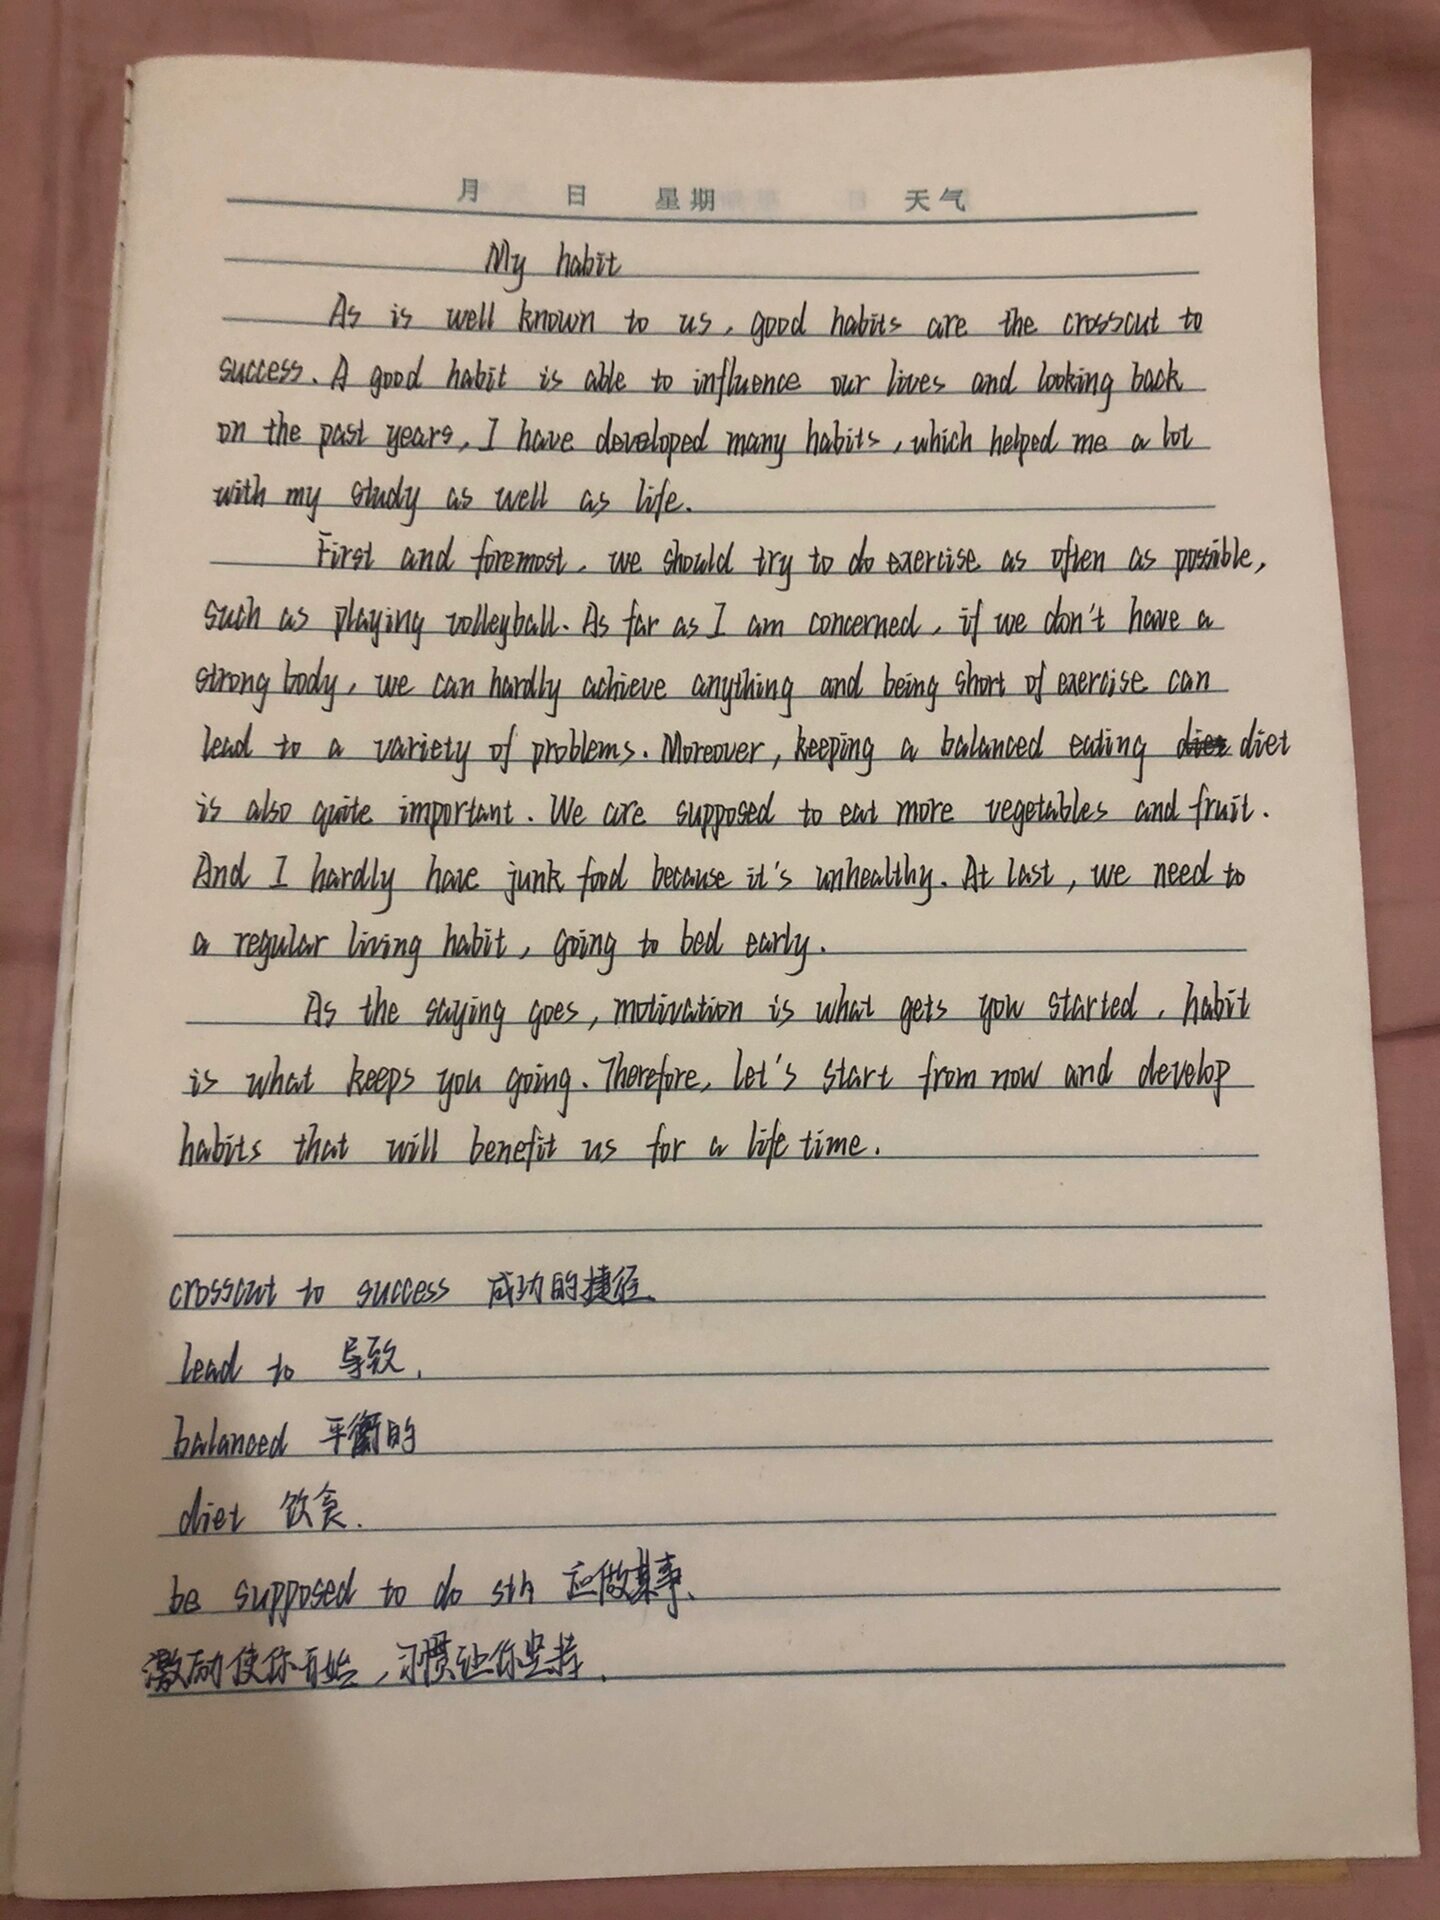 月 日 星期 天气
My habit
As is well known to us, good habits are the crosscut to
success. A good habit is able to influence our lives and looking back
on the past years, I have developed many habits, which helped me a lot
with my study as well as life.
First and foremost, we should try to do exercise as often as possible,
such as playing volleyball. As far as I am concerned, if we don't have a
strong body, we can hardly achieve anything and being short of exercise can
lead to a variety of problems. Moreover, keeping a balanced eating diet
is also quite important. We are supposed to eat more vegetables and fruit.
And I hardly have junk food because it's unhealthy. At last, we need to
a regular living habit, going to bed early.
As the saying goes, motivation is what gets you started, habit
is what keeps you going. Therefore, let's start from now and develop
habits that will benefit us for a life time.
crosscut to success 成功的捷径.
lead to 导致.
balanced 平衡的
diet 饮食.
be supposed to do sth 应做某事.
激励使你开始,习惯让你坚持.